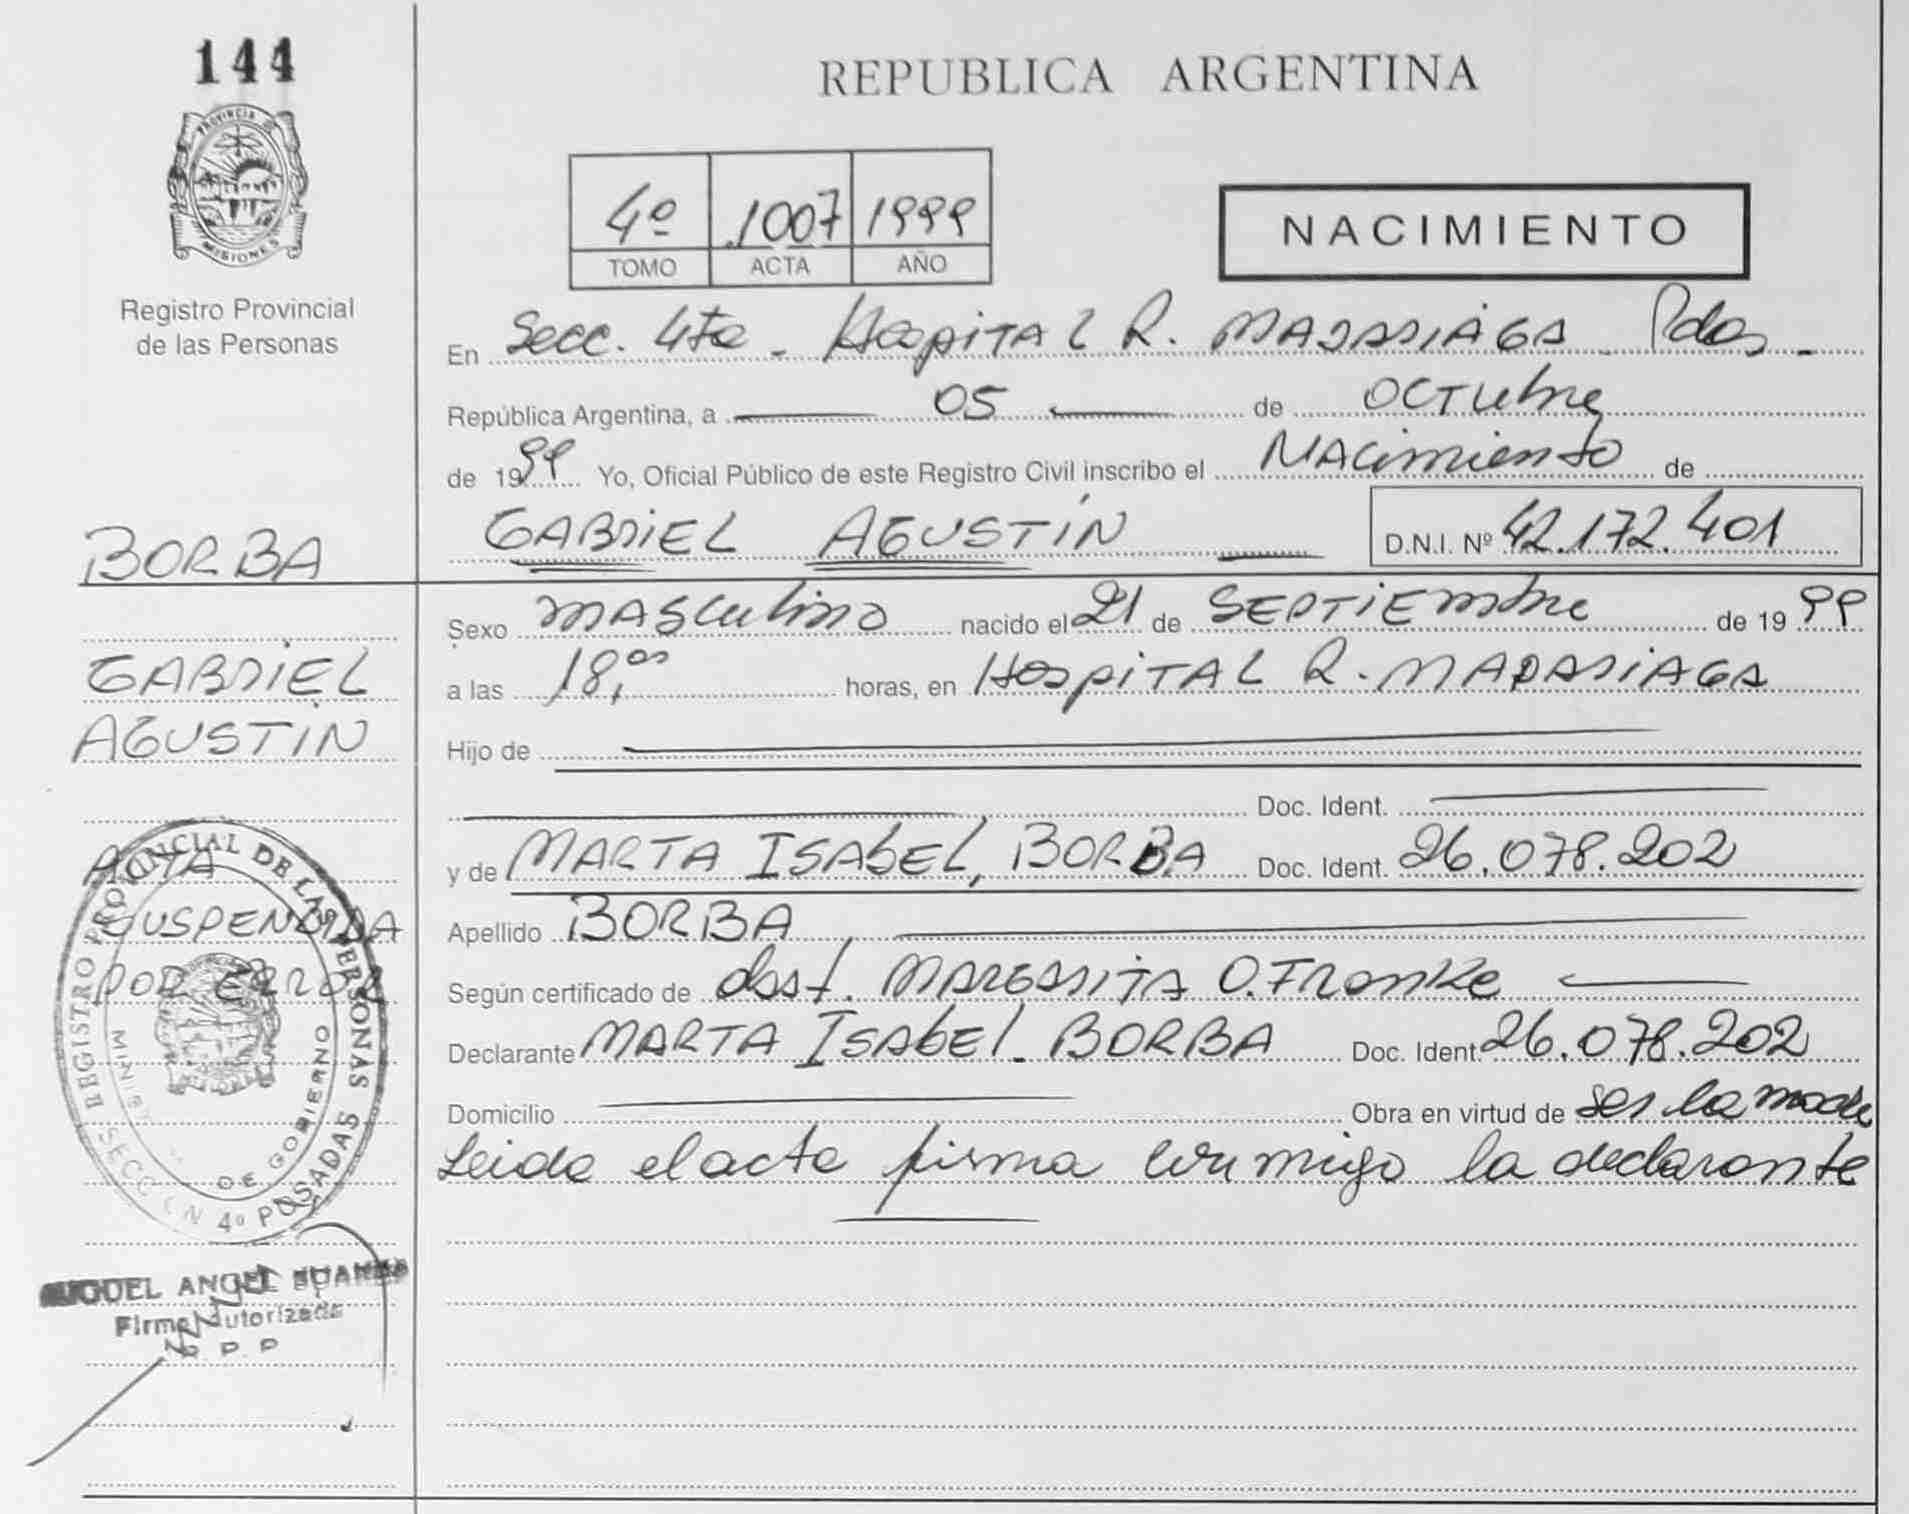 144
PROVINCIA DE
MISIONES
Registro Provincial
de las Personas
BORBA
GABRIEL
AGUSTIN
ACTA
SUSPENDIDA
POR ERROR
REGISTRO PROVINCIAL DE LAS PERSONAS
DE GOBIERNO
SECCION 4º POSADAS
MIGUEL ANGEL
Firma Autorizada
R. P. P
REPUBLICA ARGENTINA
4º 1007 1999
TOMO ACTA AÑO
NACIMIENTO
En Secc. 4ta - Hospital R. MADARIAGA - Pdas. -
República Argentina, a 05 de OCTubre
de 1999 Yo, Oficial Público de este Registro Civil inscribo el NAcimiento de
GABRIEL AGUSTIN D.N.I. Nº 42.172.401
Sexo MASCulino nacido el 21 de SEPTIEmbre de 1999
a las 18,00 horas, en HospiTAL R. MADARIAGA
Hijo de
Doc. Ident.
y de MARTA ISAbEL, BORBA Doc. Ident. 26.078.202
Apellido BORBA
Según certificado de obst. MARGARITA O. FRanke
Declarante MARTA ISAbEl BORBA Doc. Ident. 26.078.202
Domicilio Obra en virtud de ser la madre
Leida el acta firma conmigo la declarante